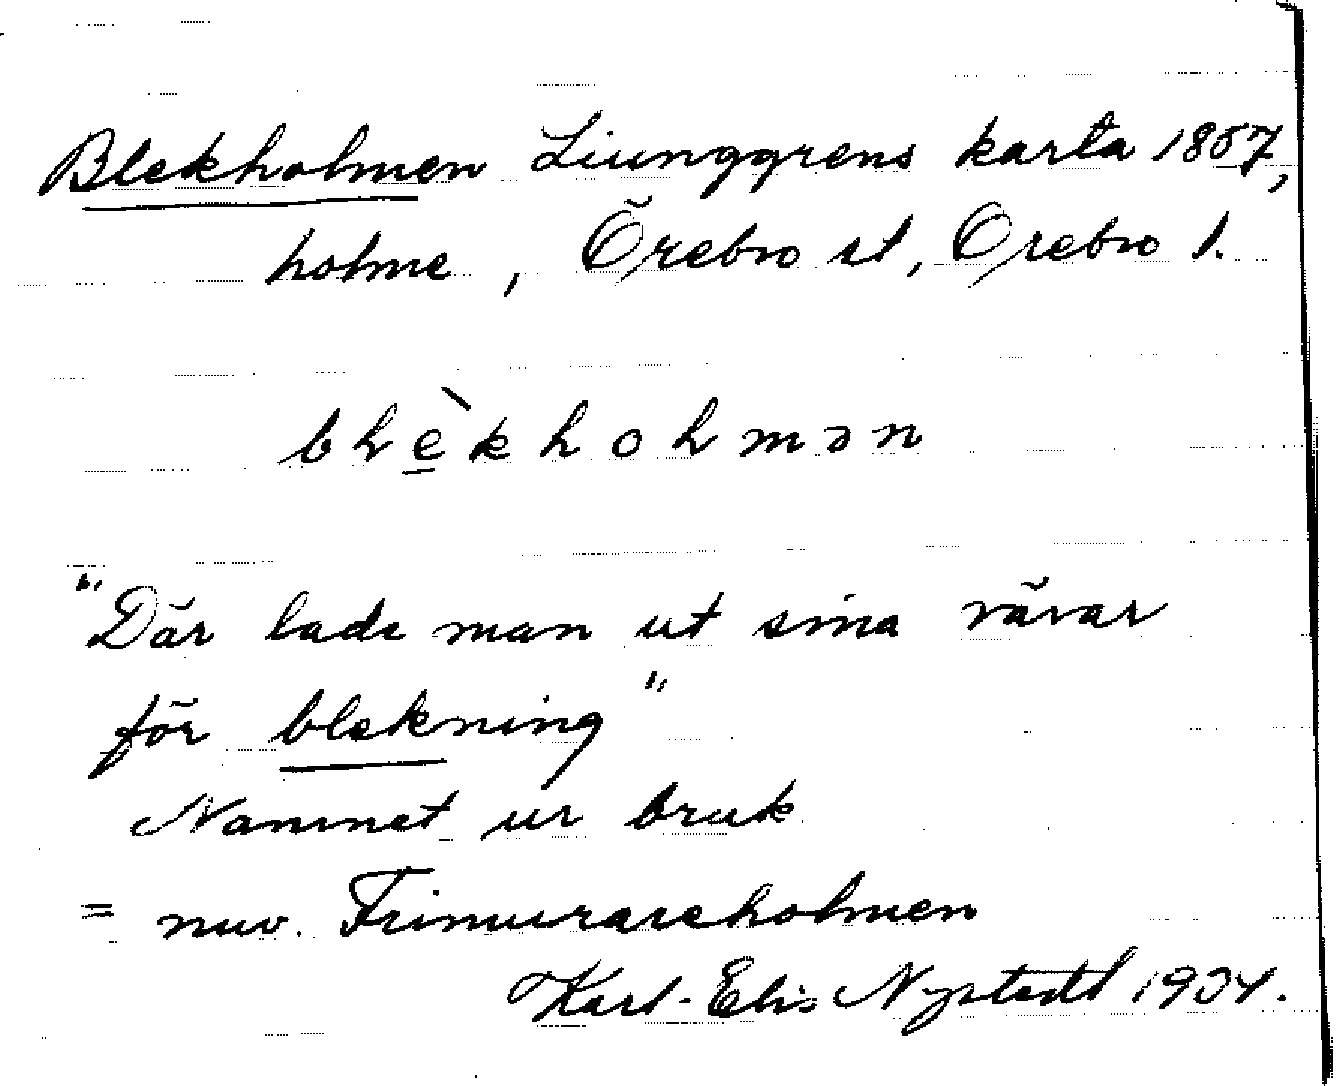 Blekholmen Liunggrens karta 1857,
holme, Örebro st, Örebro l.
blèkholmən
"Där lade man ut sina vävar
för blekning"
Namnet ur bruk
= nuv. Frimurareholmen
Karl-Elis Nystedt 1934.